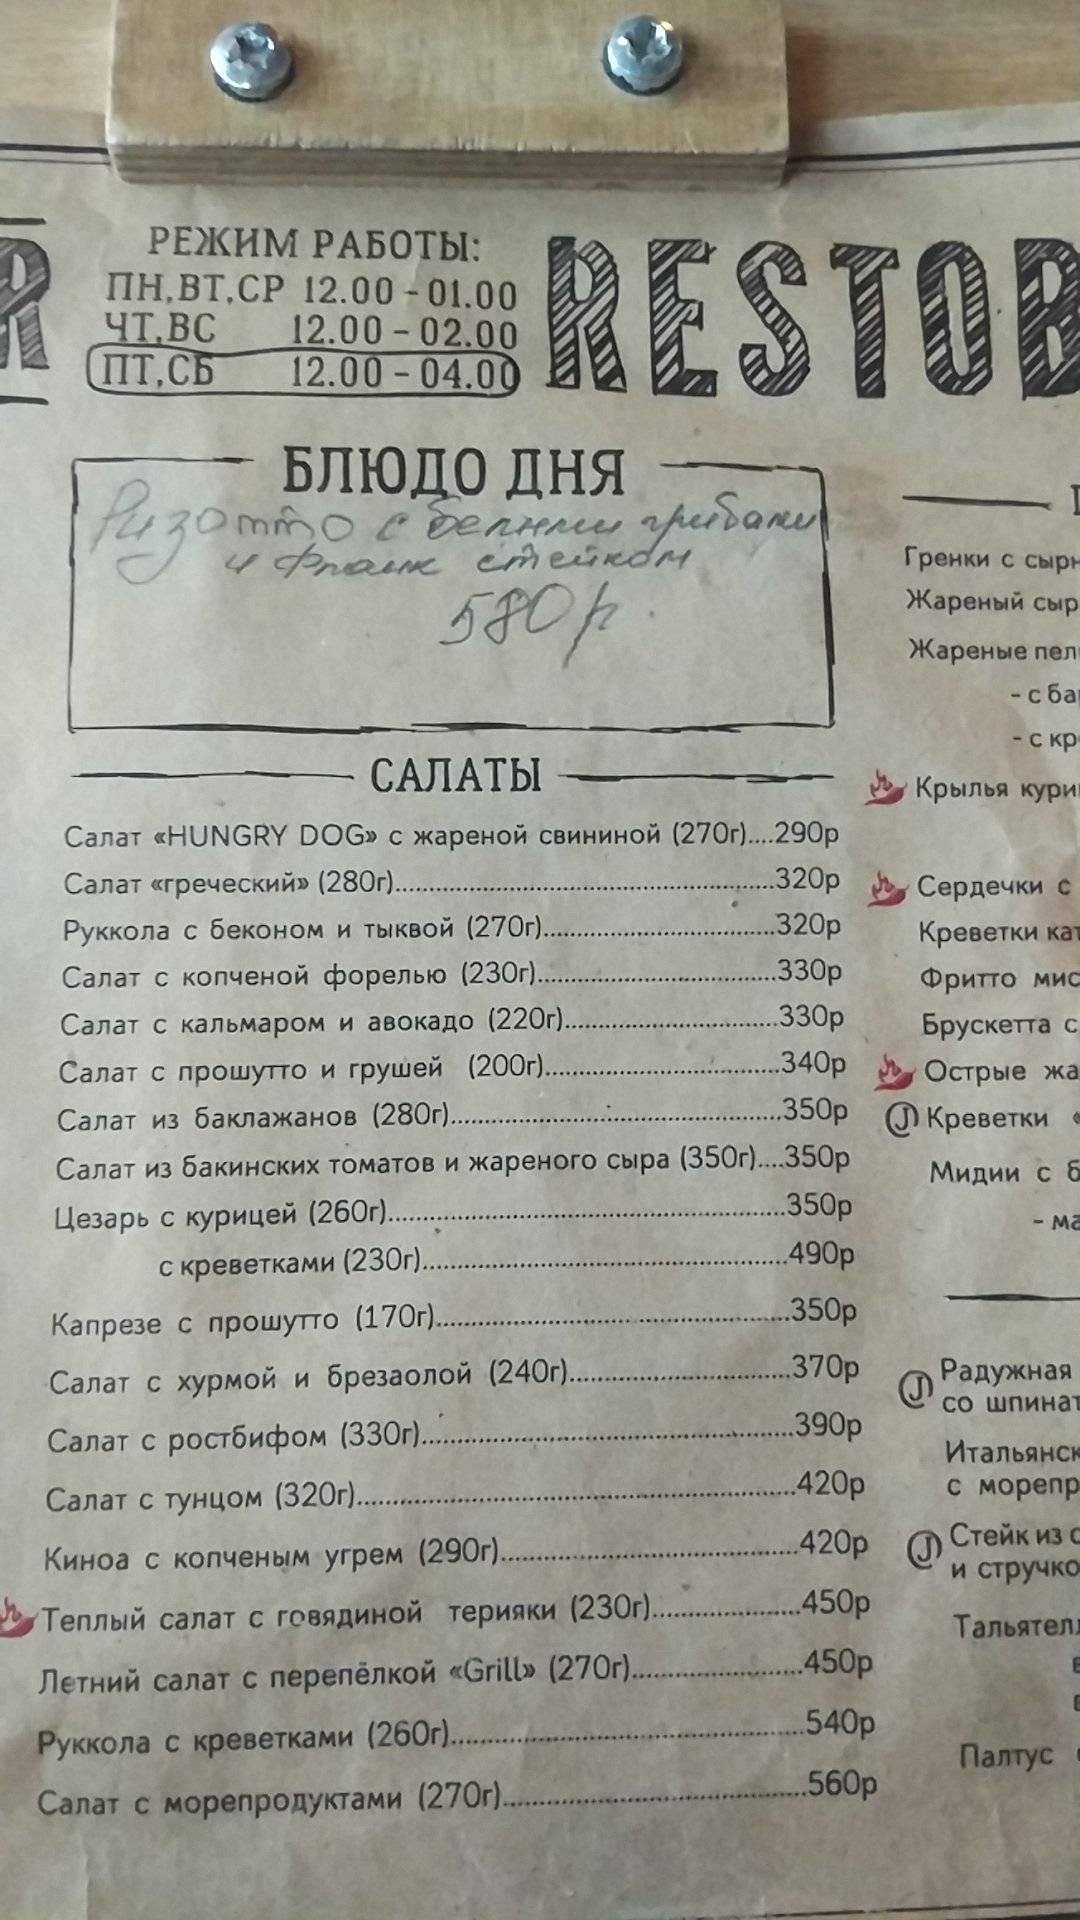 РЕЖИМ РАБОТЫ:
ПН,ВТ,СР 12.00 - 01.00
ЧТ,ВС 12.00 - 02.00
ПТ,СБ 12.00 - 04.00
RESTOB
БЛЮДО ДНЯ
Ризотто с белыми грибами
и Фланк стейком
580р.
САЛАТЫ
Салат «HUNGRY DOG» с жареной свининой (270г)....290р
Салат «греческий» (280г)....320р
Руккола с беконом и тыквой (270г)....320р
Салат с копченой форелью (230г)....330р
Салат с кальмаром и авокадо (220г)....330р
Салат с прошутто и грушей (200г)....340р
Салат из баклажанов (280г)....350р
Салат из бакинских томатов и жареного сыра (350г)....350р
Цезарь с курицей (260г)....350р
с креветками (230г)....490р
Капрезе с прошутто (170г)....350р
Салат с хурмой и брезаолой (240г)....370р
Салат с ростбифом (330г)....390р
Салат с тунцом (320г)....420р
Киноа с копченым угрем (290г)....420р
Теплый салат с говядиной терияки (230г)....450р
Летний салат с перепёлкой «Grill» (270г)....450р
Руккола с креветками (260г)....540р
Салат с морепродуктами (270г)....560р
Гренки с сырн
Жареный сыр
Жареные пел
- с ба
- с кр
Крылья кури
Сердечки с
Креветки кат
Фритто мис
Брускетта с
Острые жа
Креветки «
Мидии с б
- ма
Радужная
со шпинат
Итальянск
с морепр
Стейк из с
и стручко
Тальятел
Палтус